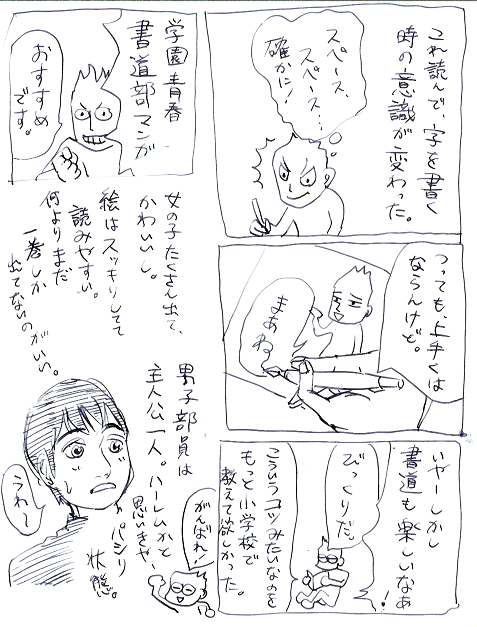 これ読んで、字を書く
時の意識が変わった。
スペース、
スペース…
確かに!
つっても、上手くは
ならんけど。
まあね
いやーしかし
書道も楽しいなぁ!
びっくりだ。
こういうコツみたいなのを
もっと小学校で
教えて欲しかった。
学園青春
書道部マンガ
おすすめ
です。
女の子たくさん出て、
かわいいし。
絵はスッキリしてて
読みやすい。
何よりまだ
一巻しか
出てないのがいい。
男子部員は
主人公一人。ハーレムかと
思いきや、
パシリ
状態。
がんばれ!
うわ〜